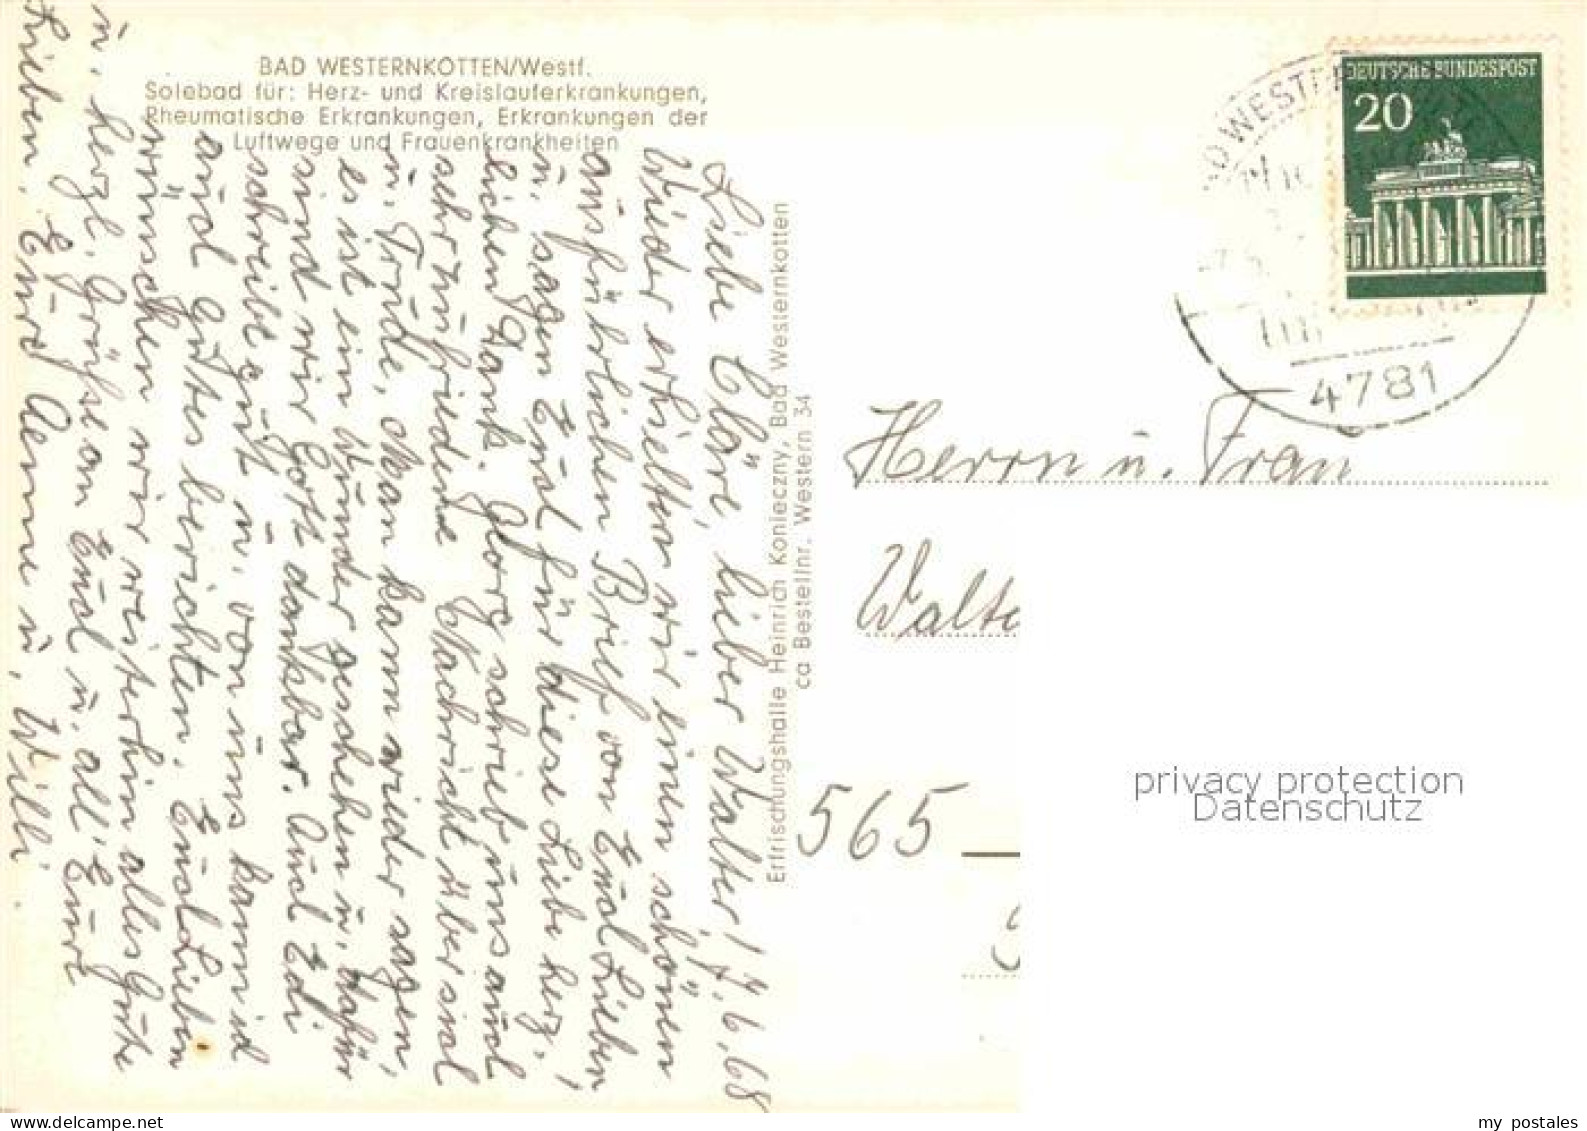 BAD WESTERNKOTTEN/Westf.
Solebad für: Herz- und Kreislauferkrankungen,
Rheumatische Erkrankungen, Erkrankungen der
Luftwege und Frauenkrankheiten
7.6.68
Liebe Cläre, lieber Walter!
Wieder erhielten wir einen schönen
ausführlichen Brief von Euch Lieben,
u. sagen Euch für diese Liebe herz-
lichen Dank. schrieb uns auch
sehr zufriedene Nachricht über sich
u. Trude, Man kann wieder sagen,
es ist ein Wunder geschehen u. dafür
sind wir Gott dankbar. Auch Edi
schreibt gut u. von uns kann ich
auch Gutes berichten. Euch Lieben
wünschen wir weiterhin alles Gute
u. herzl. Grüße an Euch u. all' Eure
Lieben, Eure Aenne u. Willi.
Erfrischungshalle Heinrich Konieczny, Bad Westernkotten
ca Bestellnr. Western 34
DEUTSCHE BUNDESPOST
20
4781
Herrn u. Frau
Walte
565
privacy protection
Datenschutz
my postales